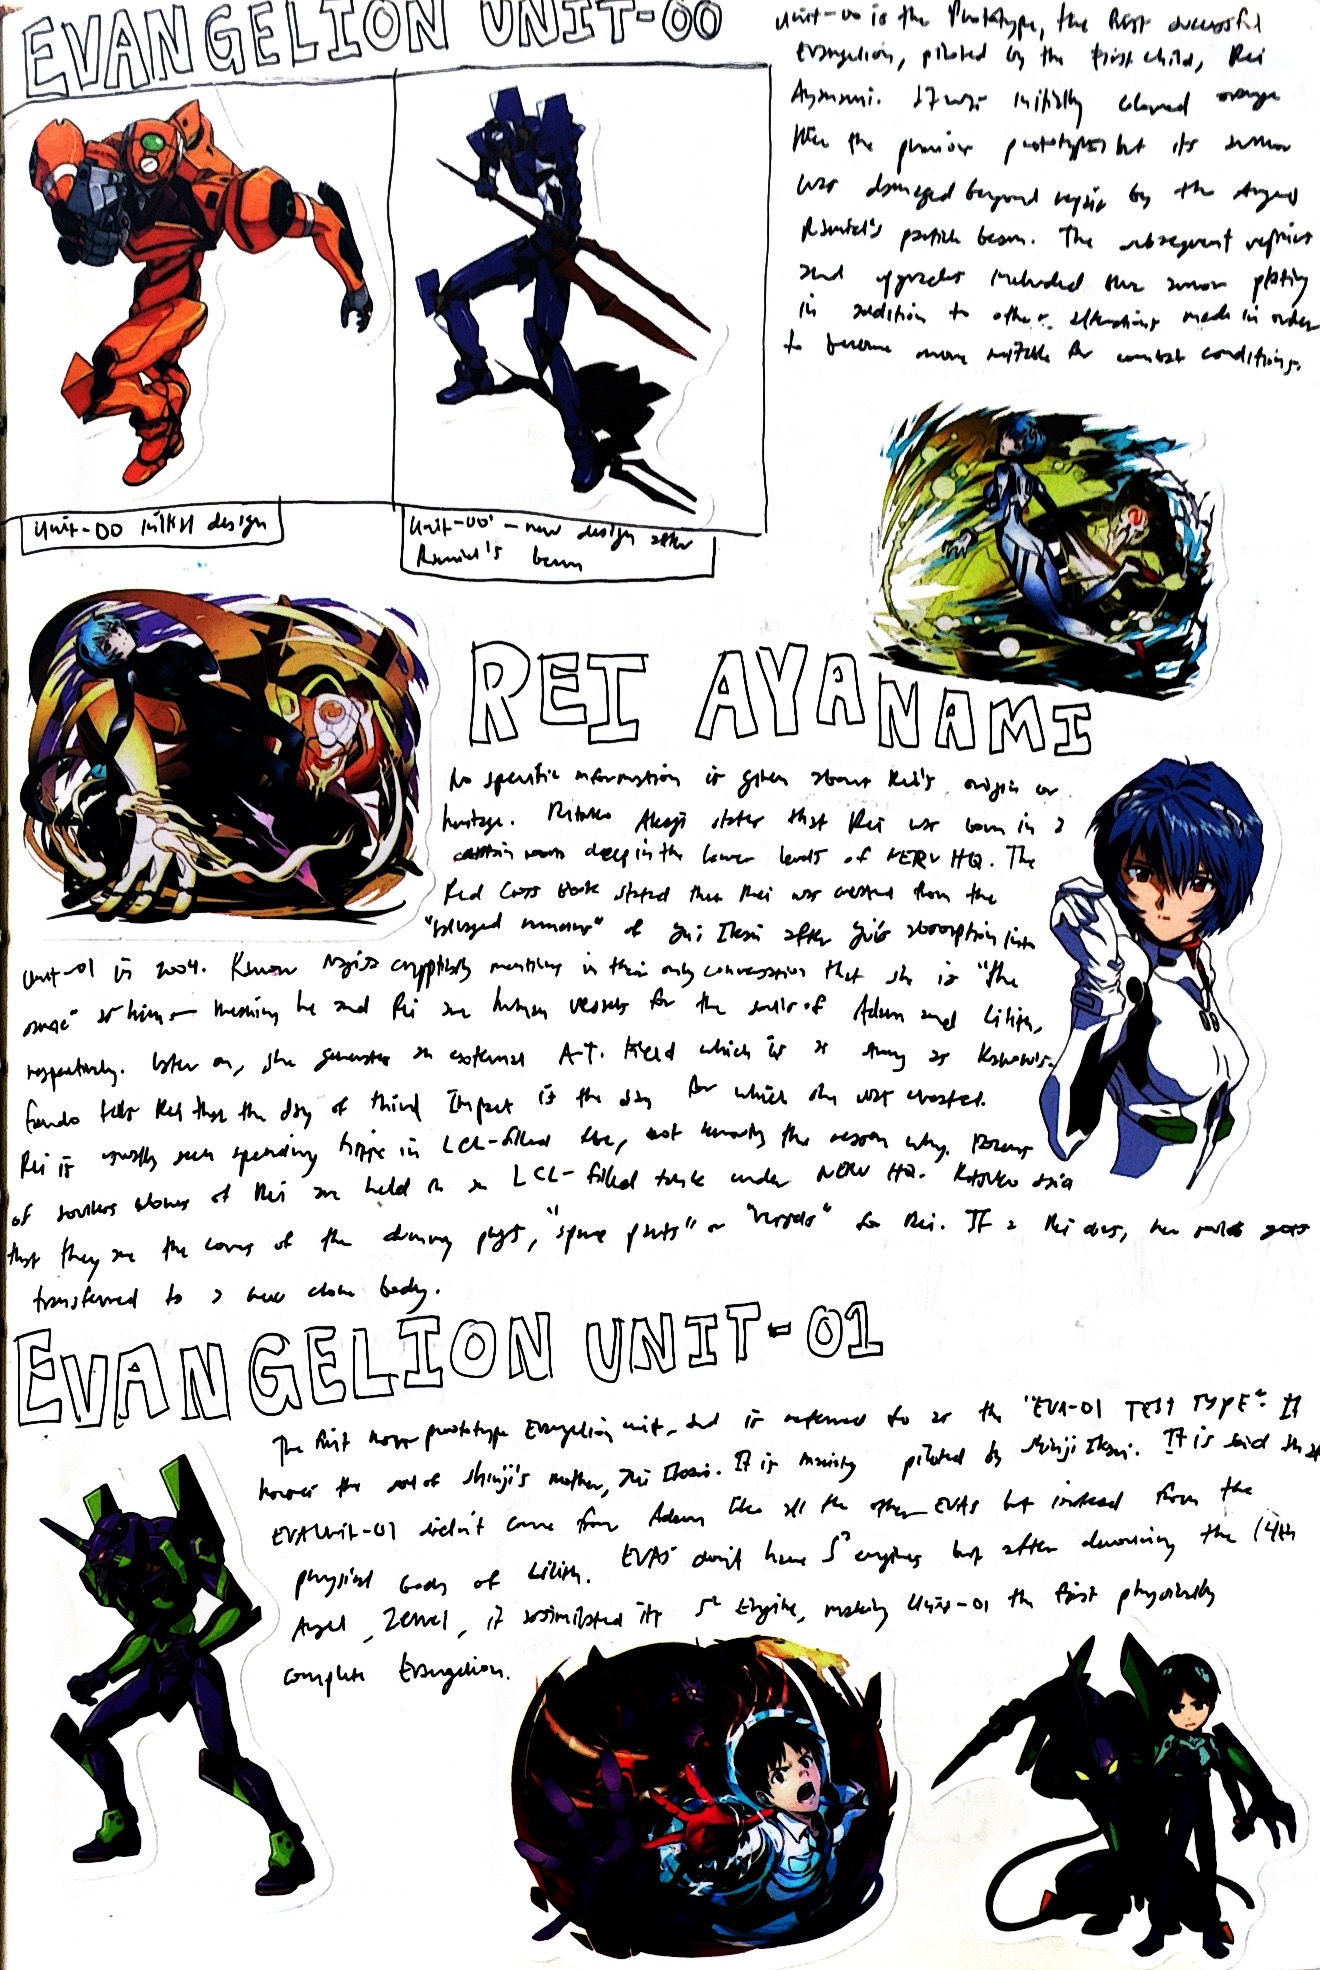 EVANGELION UNIT-00
Unit-00 is the Prototype, the first successful
Evangelion, piloted by the First Child, Rei
Ayanami. It was initially colored orange
like the previous prototypes but its armor
was damaged beyond repair by the Angel
Ramiel's particle beam. The subsequent refits
and upgrades included the armor plating
in addition to other alterations made in order
to become more suitable for combat conditions.
Unit-00 initial design
Unit-00' - new design after
Ramiel's beam
REI AYANAMI
No specific information is given about Rei's origin or
heritage. Ritsuko Akagi states that Rei was born in a
certain room deep in the lower levels of NERV HQ. The
Red Cross Book stated that Rei was created from the
"salvaged remains" of Yui Ikari after Yui's absorption into
Unit-01 in 2004. Kaworu Nagisa cryptically mentions in their only conversation that she is "the
same" as him — meaning he and Rei are human vessels for the souls of Adam and Lilith,
respectively. Later on, she generates an external A.T. Field which is as strong as Kaworu's.
Gendo tells Rei that the day of Third Impact is the day for which she was created.
Rei is usually seen spending time in LCL-filled tube, not knowing the reason why. Dozens
of soulless clones of Rei are held in an LCL-filled tank under NERV HQ. Ritsuko said
that they are the cores of the dummy plugs, "spare parts" or "vessels" for Rei. If a Rei dies, her soul gets
transferred to a new clone body.
EVANGELION UNIT-01
The first non-prototype Evangelion unit, and is referred to as the "EVA-01 TEST TYPE". It
houses the soul of Shinji's mother, Yui Ikari. It is mainly piloted by Shinji Ikari. It is said that
EVA Unit-01 didn't come from Adam like all the other EVAs but instead from the
physical body of Lilith. EVAs don't have S² engines but after devouring the 14th
Angel, Zeruel, it assimilated its S² Engine, making Unit-01 the first physically
complete Evangelion.